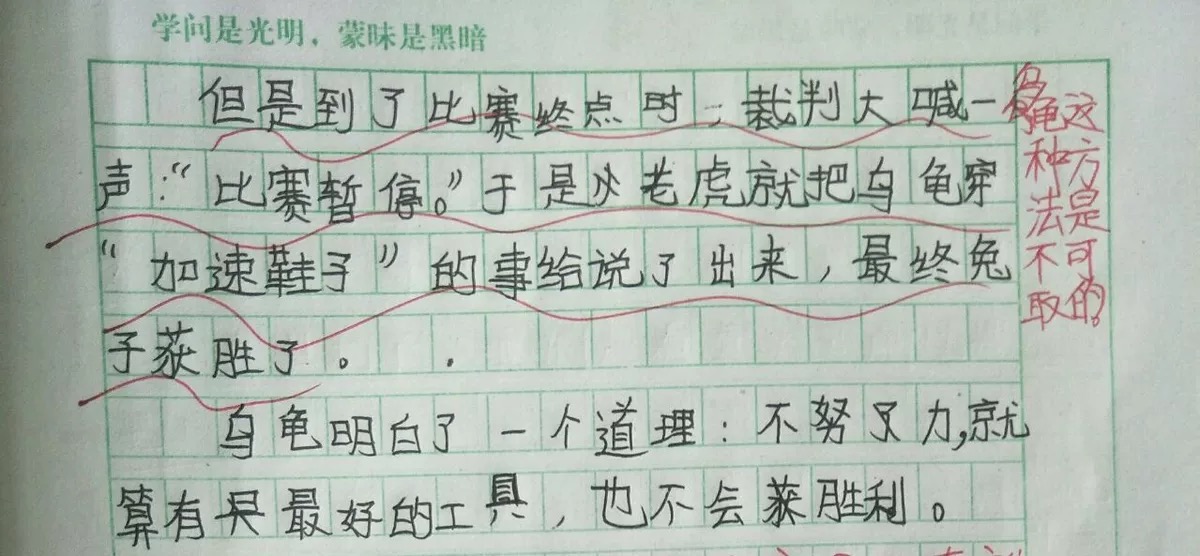 学问是光明，蒙昧是黑暗
但是到了比赛终点时，裁判大喊一
声：“比赛暂停。”于是火老虎就把乌龟穿
“加速鞋子”的事给说了出来，最终兔
子获胜了。
乌龟明白了一个道理：不努又力,就
算有最好的工具，也不会获胜利。
乌龟这
种方
法是
不可
取的。